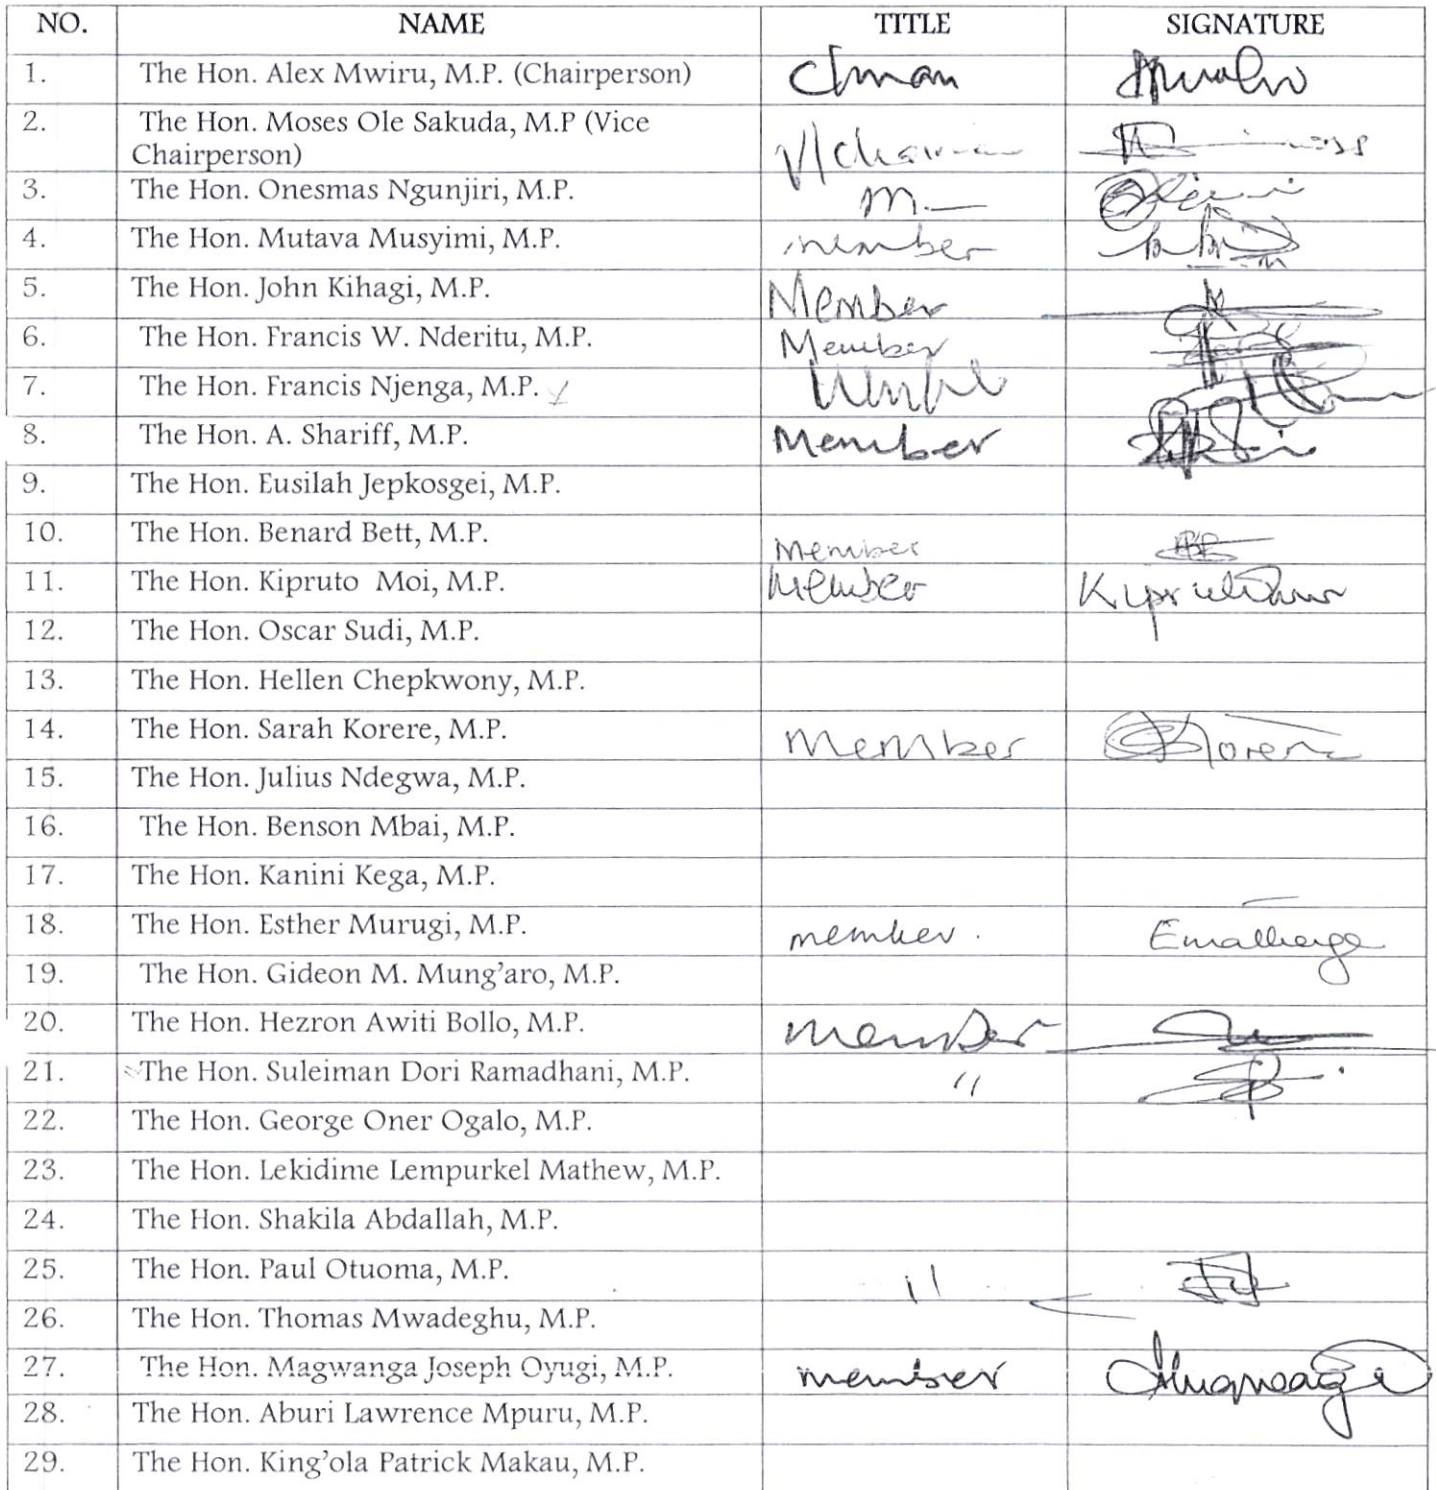 NO. NAME TITLE SIGNATURE
1. The Hon. Alex Mwiru, M.P. (Chairperson) Cman
2. The Hon. Moses Ole Sakuda, M.P (Vice
Chairperson) V/chairman
3. The Hon. Onesmas Ngunjiri, M.P. M.
4. The Hon. Mutava Musyimi, M.P. member
5. The Hon. John Kihagi, M.P. Member
6. The Hon. Francis W. Nderitu, M.P. Member
7. The Hon. Francis Njenga, M.P.
8. The Hon. A. Shariff, M.P. Member
9. The Hon. Eusilah Jepkosgei, M.P.
10. The Hon. Benard Bett, M.P. Member
11. The Hon. Kipruto Moi, M.P. Member
12. The Hon. Oscar Sudi, M.P.
13. The Hon. Hellen Chepkwony, M.P.
14. The Hon. Sarah Korere, M.P. Member
15. The Hon. Julius Ndegwa, M.P.
16. The Hon. Benson Mbai, M.P.
17. The Hon. Kanini Kega, M.P.
18. The Hon. Esther Murugi, M.P. member.
19. The Hon. Gideon M. Mung'aro, M.P.
20. The Hon. Hezron Awiti Bollo, M.P. member
21. The Hon. Suleiman Dori Ramadhani, M.P. "
22. The Hon. George Oner Ogalo, M.P.
23. The Hon. Lekidime Lempurkel Mathew, M.P.
24. The Hon. Shakila Abdallah, M.P.
25. The Hon. Paul Otuoma, M.P. "
26. The Hon. Thomas Mwadeghu, M.P.
27. The Hon. Magwanga Joseph Oyugi, M.P. member
28. The Hon. Aburi Lawrence Mpuru, M.P.
29. The Hon. King'ola Patrick Makau, M.P.